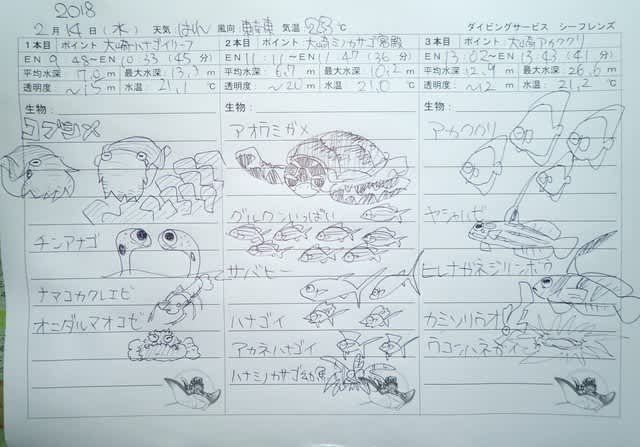 2018
2月14日(水) 天気 はれ 風向 東北東 気温 23℃ ダイビングサービス シーフレンズ
1本目 ポイント 大崎ハナゴイリーフ
EN 9:48~EN 10:33 (45分)
平均水深 7.0m 最大水深 13.3m
透明度 ~15m 水温 21.1℃
生物:
コブシメ
チンアナゴ
ナマコカクレエビ
オニダルマオコゼ
2本目 ポイント 大崎ミノカサゴ宮殿
EN 11:11~EN 11:47 (36分)
平均水深 6.7m 最大水深 10.2m
透明度 ~20m 水温 21.0℃
生物:
アオウミガメ
グルクンいっぱい
サバヒー
ハナゴイ
アカネハナゴイ
ハナミノカサゴ幼魚
3本目 ポイント 大崎アカククリ
EN 13:02~EN 13:43 (41分)
平均水深 12.9m 最大水深 26.6m
透明度 ~12m 水温 21.2℃
生物:
アカククリ
ヤシャハゼ
ヒレナガネジリンボウ
カミソリウオ
ウコンハネガイ